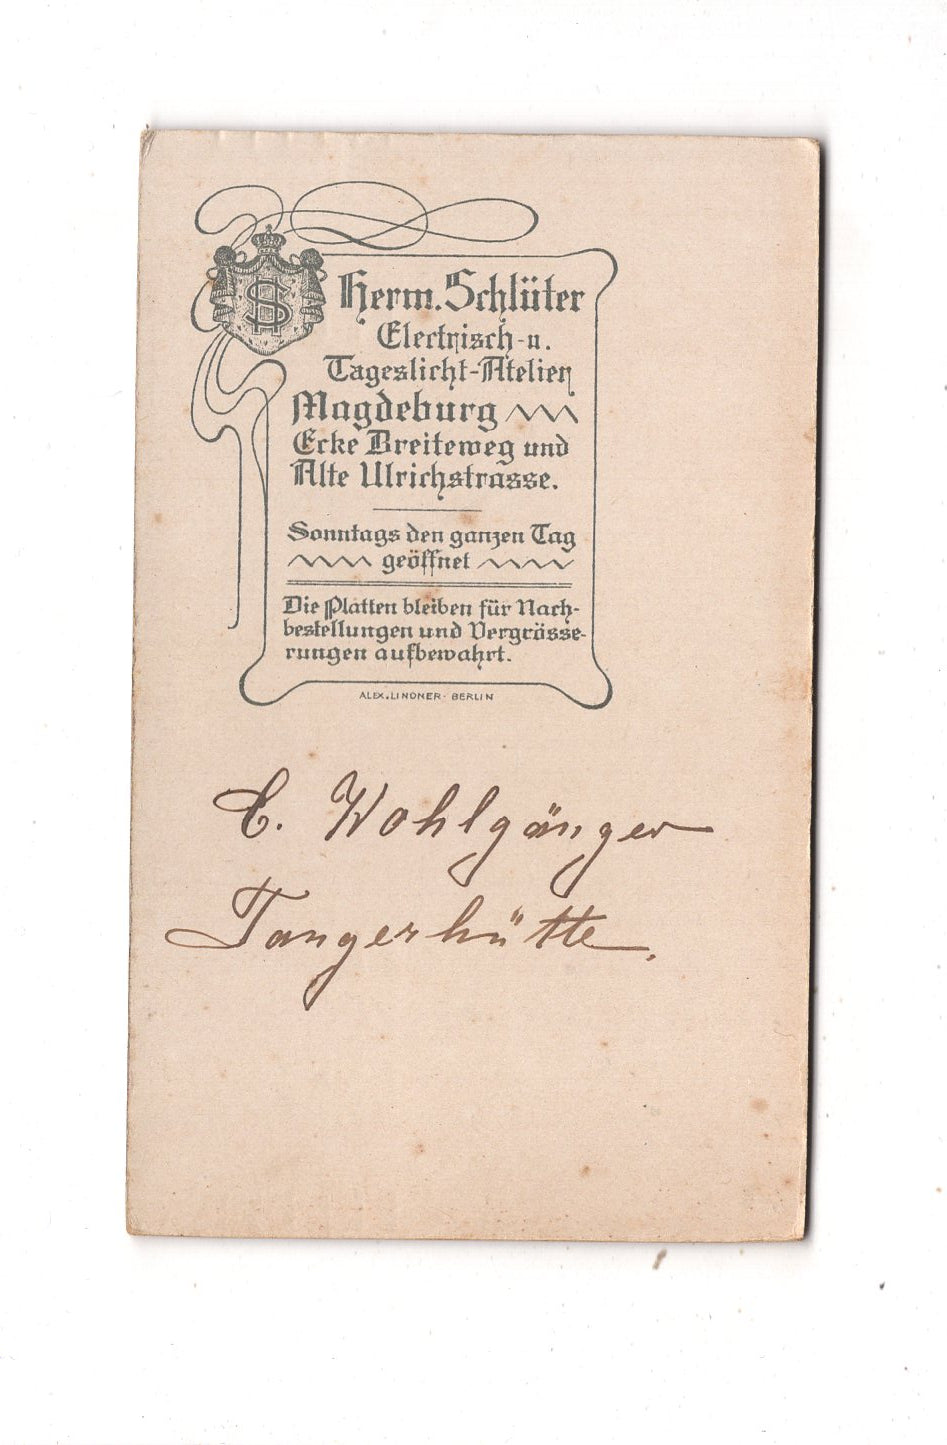 HS
Herm. Schlüter
Electrisch- u.
Tageslicht-Atelier
Magdeburg
Ecke Breiteweg und
Alte Ulrichstrasse.
Sonntags den ganzen Tag
geöffnet
Die Platten bleiben für Nach-
bestellungen und Vergrösse-
rungen aufbewahrt.
ALEX. LINDNER · BERLIN
C. Wohlgänger
Tangerhütte.